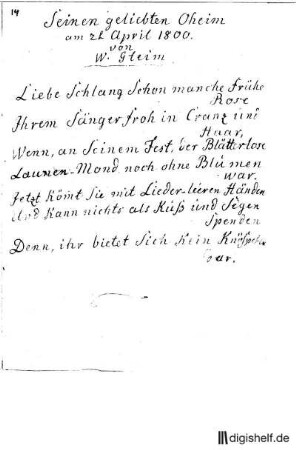 14
Seinen geliebten Oheim
am 2t April 1800.
von
W. Gleim
Liebe Schlang Schon manche frühe
Rose
Ihrem Sänger froh in Crantz und
Haar,
Wenn, an Seinem Fest, der Blätterlose
Launen-Mond noch ohne Blumen
war.
Jetzt kömt Sie mit Lieder-leeren Händen
Und kann nichts als Kuß und Segen
spenden
Denn, ihr bietet Sich kein Knöspchen
dar.
digishelf.de